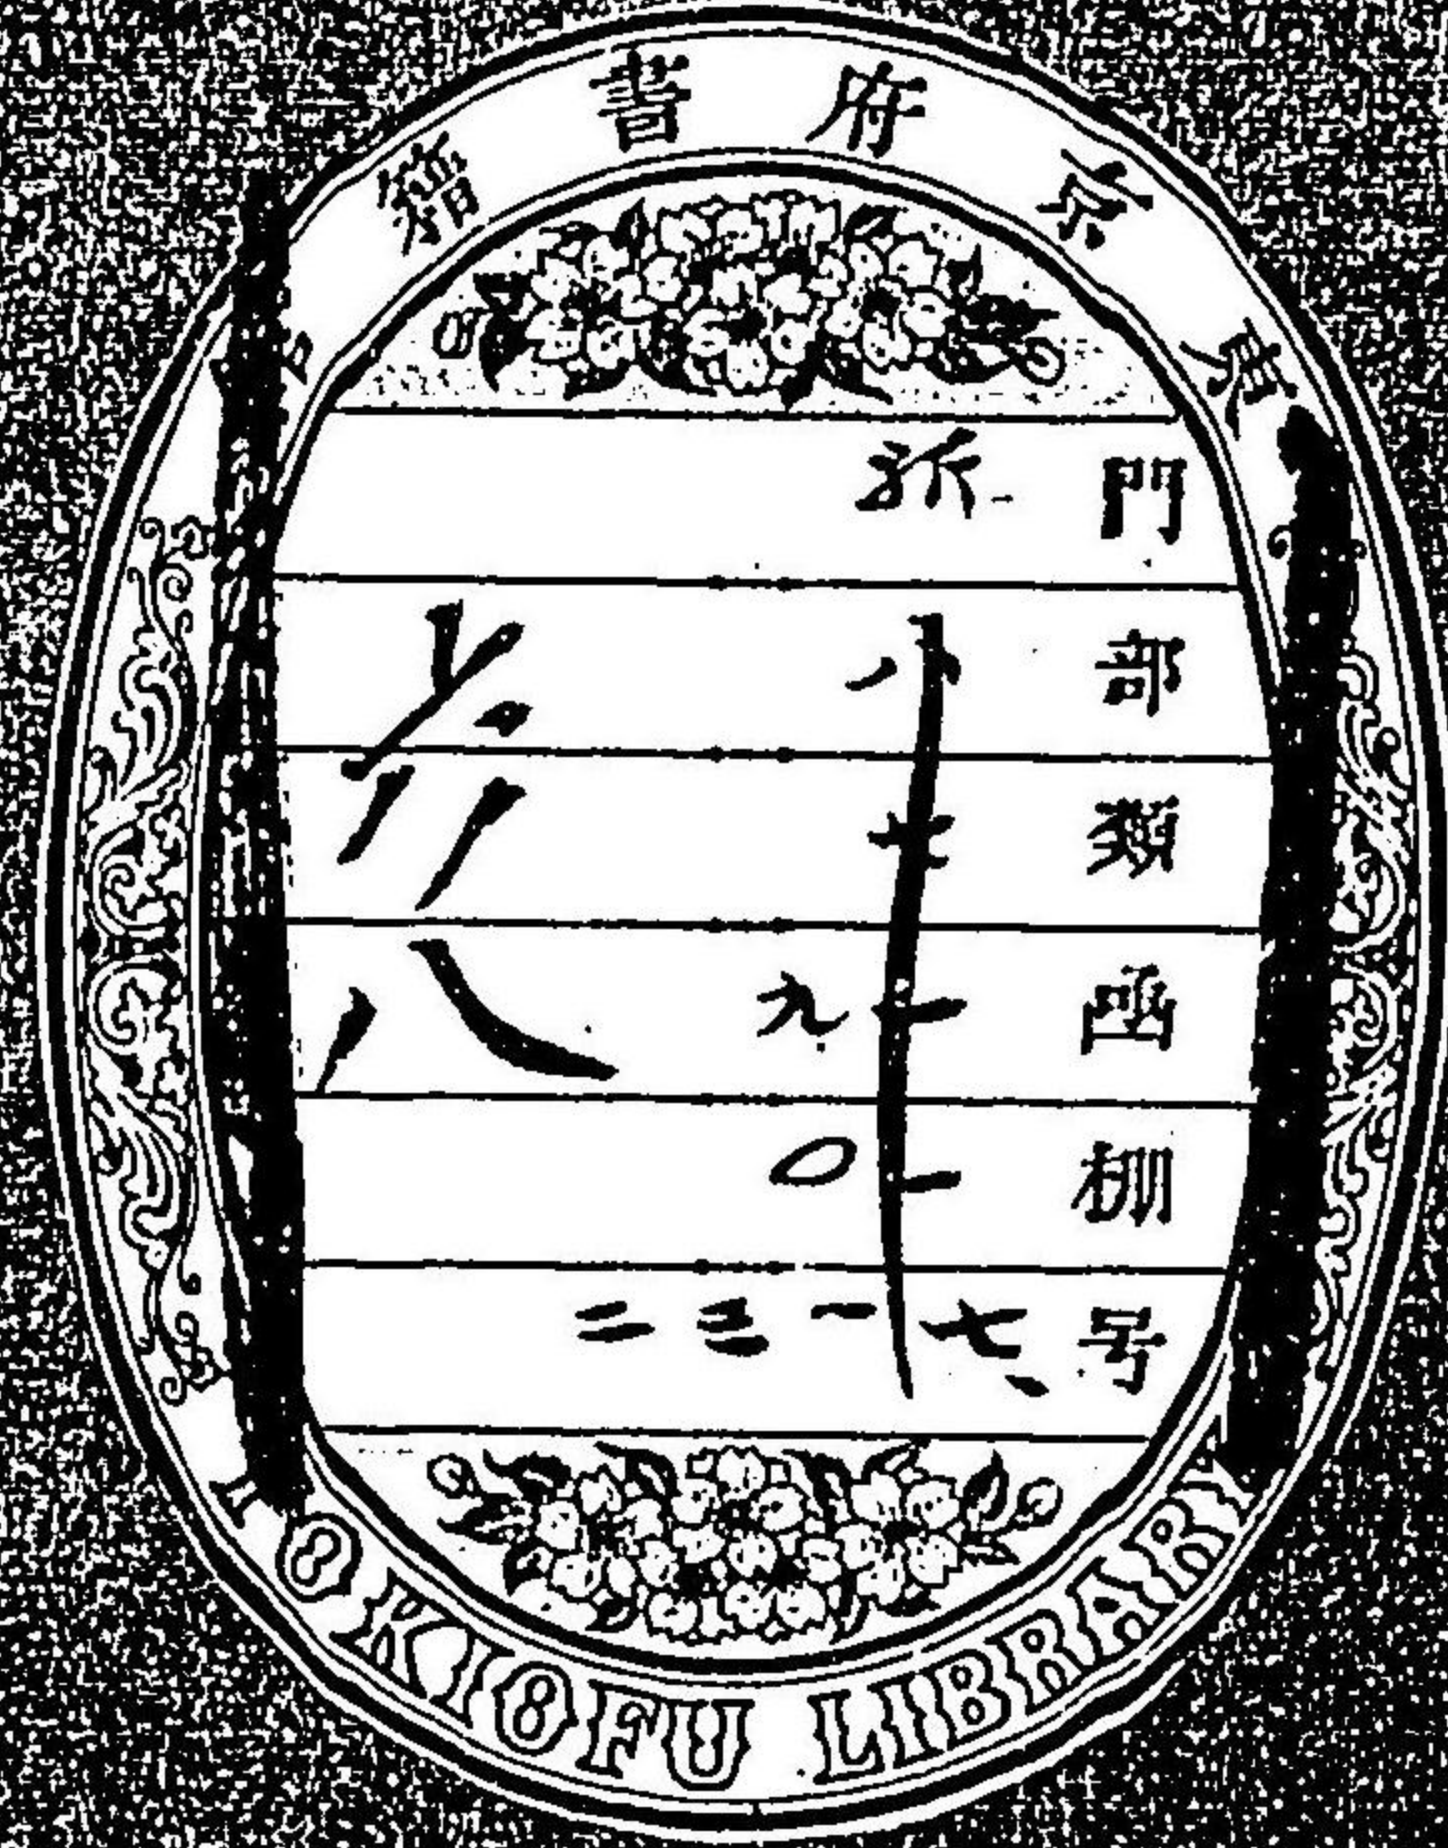 東京府書籍
門 新
部 八
類 七
函 一九
棚 一〇
号 七一三二
TOKIOFU LIBRARY